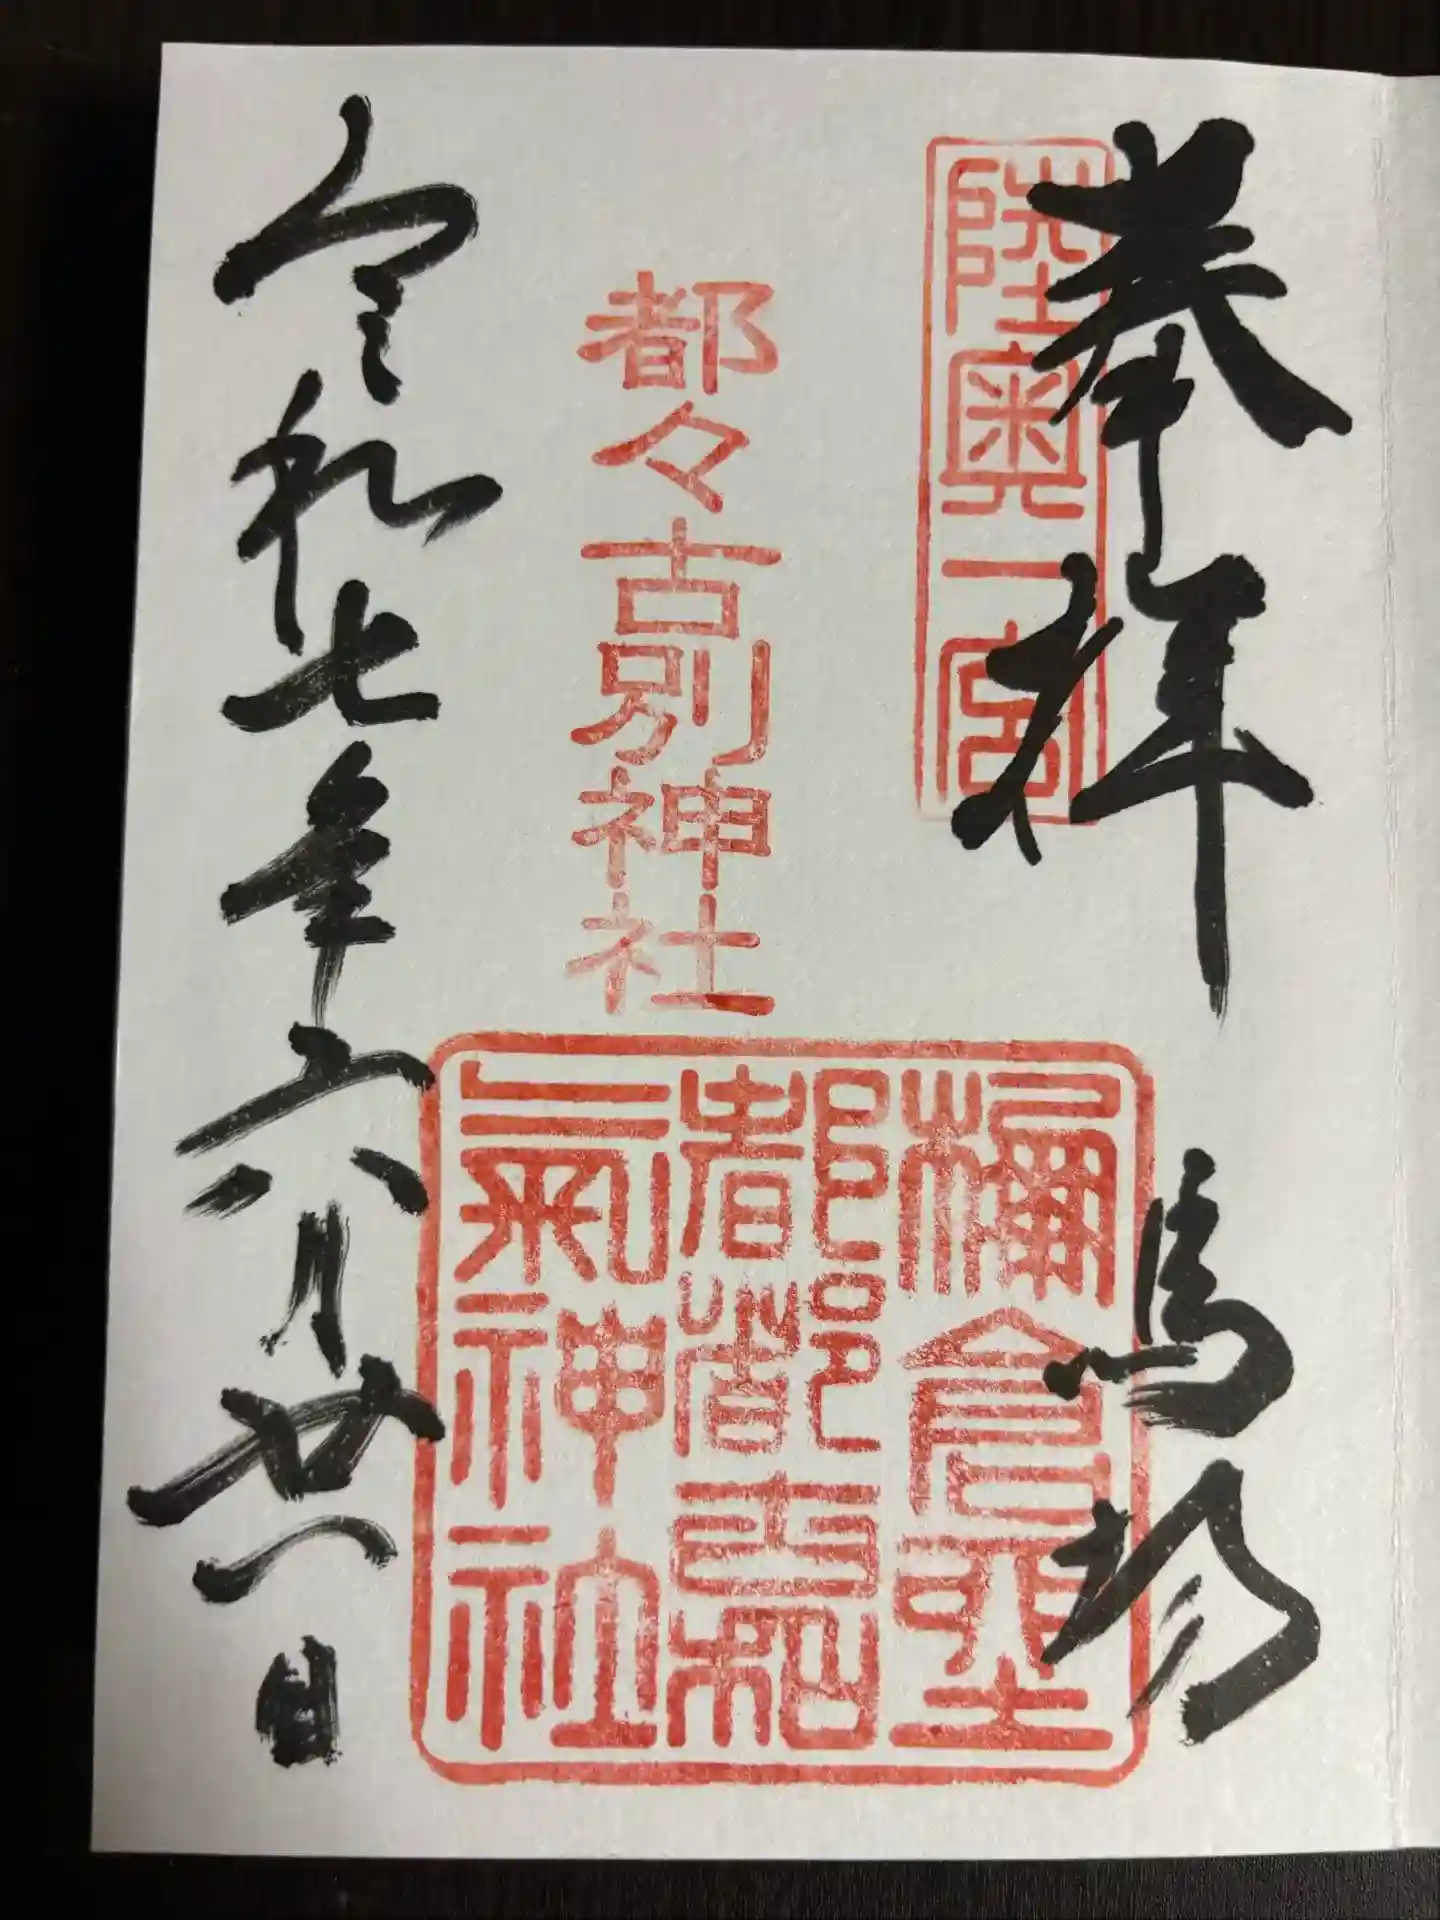 奉拝 馬場
陸奥一宮
都々古別神社
都都古和
氣神社
令和七年六月廿八日